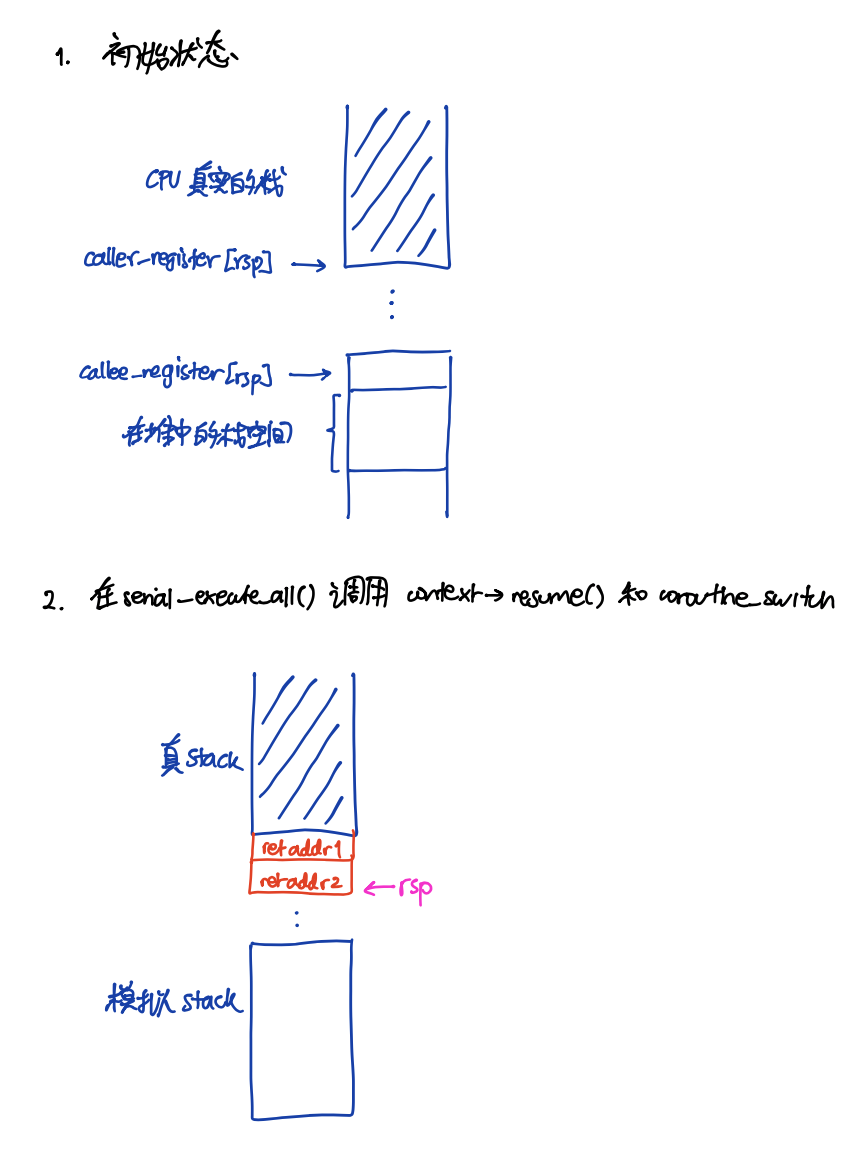 1. 初始状态
CPU 真实的栈
caller_register[rsp]
callee_register[rsp]
在堆中的栈空间
2. 在 serial_execute_all() 调用 context→resume() 和 coroutine_switch
真 stack
ret addr1
ret addr2
rsp
模拟 stack